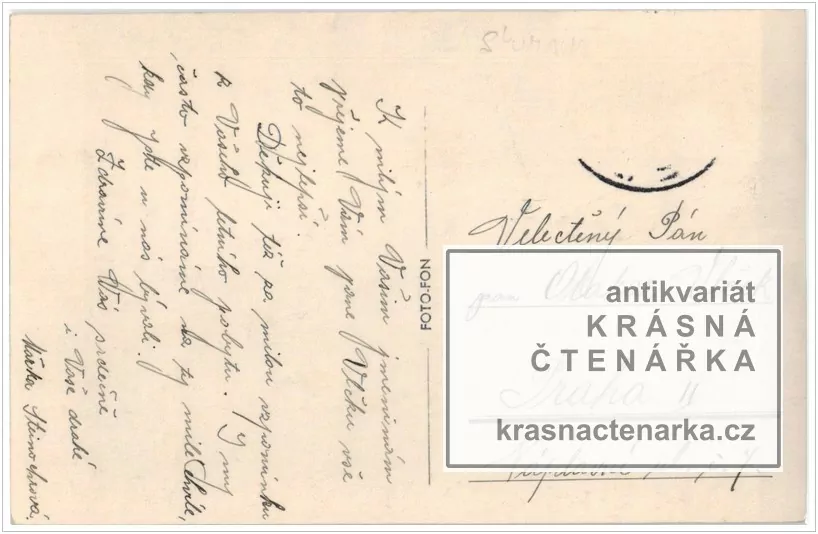 K milým Vašim jmeninám
přejeme Vám pane Vlčku vše
to nejlepší.
Děkuji též za milou vzpomínku
k Vašeho letního pobytu. I my
často vzpomínáme na ty milé chvíle,
kdy jste u nás bývali.
Zdravíme Vás srdečně
i Vaše drahé
FOTO-FON
Velectěný Pán
pan
Praha II
antikvariát
KRÁSNÁ
ČTENÁŘKA
krasnactenarka.cz